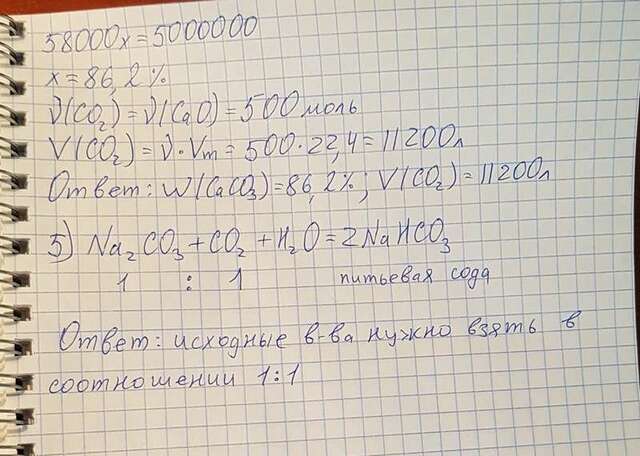 58000x=5000000
x=86,2%
ν(CO₂)=ν(CaO)=500моль
V(CO₂)=ν·Vm=500·22,4=11200л
Ответ: W(CaCO₃)=86,2%; V(CO₂)=11200л
5) Na₂CO₃+CO₂+H₂O=2NaHCO₃
1 : 1 питьевая сода
Ответ: исходные в-ва нужно взять в
соотношении 1:1